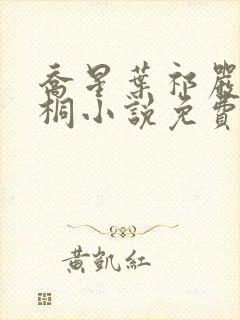 喬星葉祁嚴
桐小說免費
黃凱紅